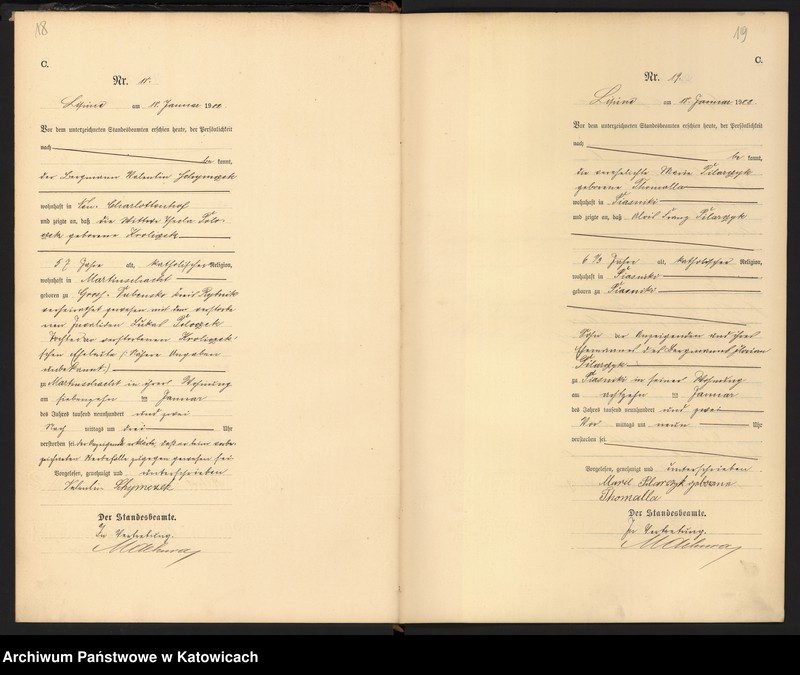 18
C.
Nr.
Lipine am 18. Januar 1902
Vor dem unterzeichneten Standesbeamten erschien heute, der Persönlichkeit
nach
be kannt,
der Bergmann Valentin
wohnhaft in Neu Charlottenhof
und zeigte an, daß die Wittwe
geborene
57 Jahre alt, katholischer Religion,
wohnhaft in Martinschacht
geboren zu Groß Kreis Rybnik
verheirathet gewesen mit dem verstorbe
nen Invaliden Lukas
Tochter der verstorbenen
schen Eheleute (: Nähere Angaben
unbekannt :)
zu Martinschacht in ihrer Wohnung
am siebenzehn ten Januar
des Jahres tausend neunhundert und zwei
Nach mittags um drei Uhr
verstorben sei. der Anzeigende erklärte, daß er beim vorbe
zeichneten Sterbefalle zugegen gewesen sei
Vorgelesen, genehmigt und unterschrieben
Valentin
Der Standesbeamte.
In Vertretung.
19
C.
Nr. 19.
Lipine am 18. Januar 1902.
Vor dem unterzeichneten Standesbeamten erschien heute, der Persönlichkeit
nach
be kannt,
die verehelichte Marie Pilarczyk
geborene Thomalla
wohnhaft in Piasniki
und zeigte an, daß Alois Franz Pilarczyk
6 Jahre alt, katholischer Religion,
wohnhaft in Piasniki
geboren zu Piasniki
Sohn der Anzeigenden und ihres
Ehemannes des Bergmanns Florian
Pilarczyk
zu Piasniki in seiner Wohnung
am achtzehn ten Januar
des Jahres tausend neunhundert und zwei
Vor mittags um neun Uhr
verstorben sei.
Vorgelesen, genehmigt und unterschrieben.
Marie Pilarczyk geborene
Thomalla
Der Standesbeamte.
In Vertretung.
Archiwum Państwowe w Katowicach